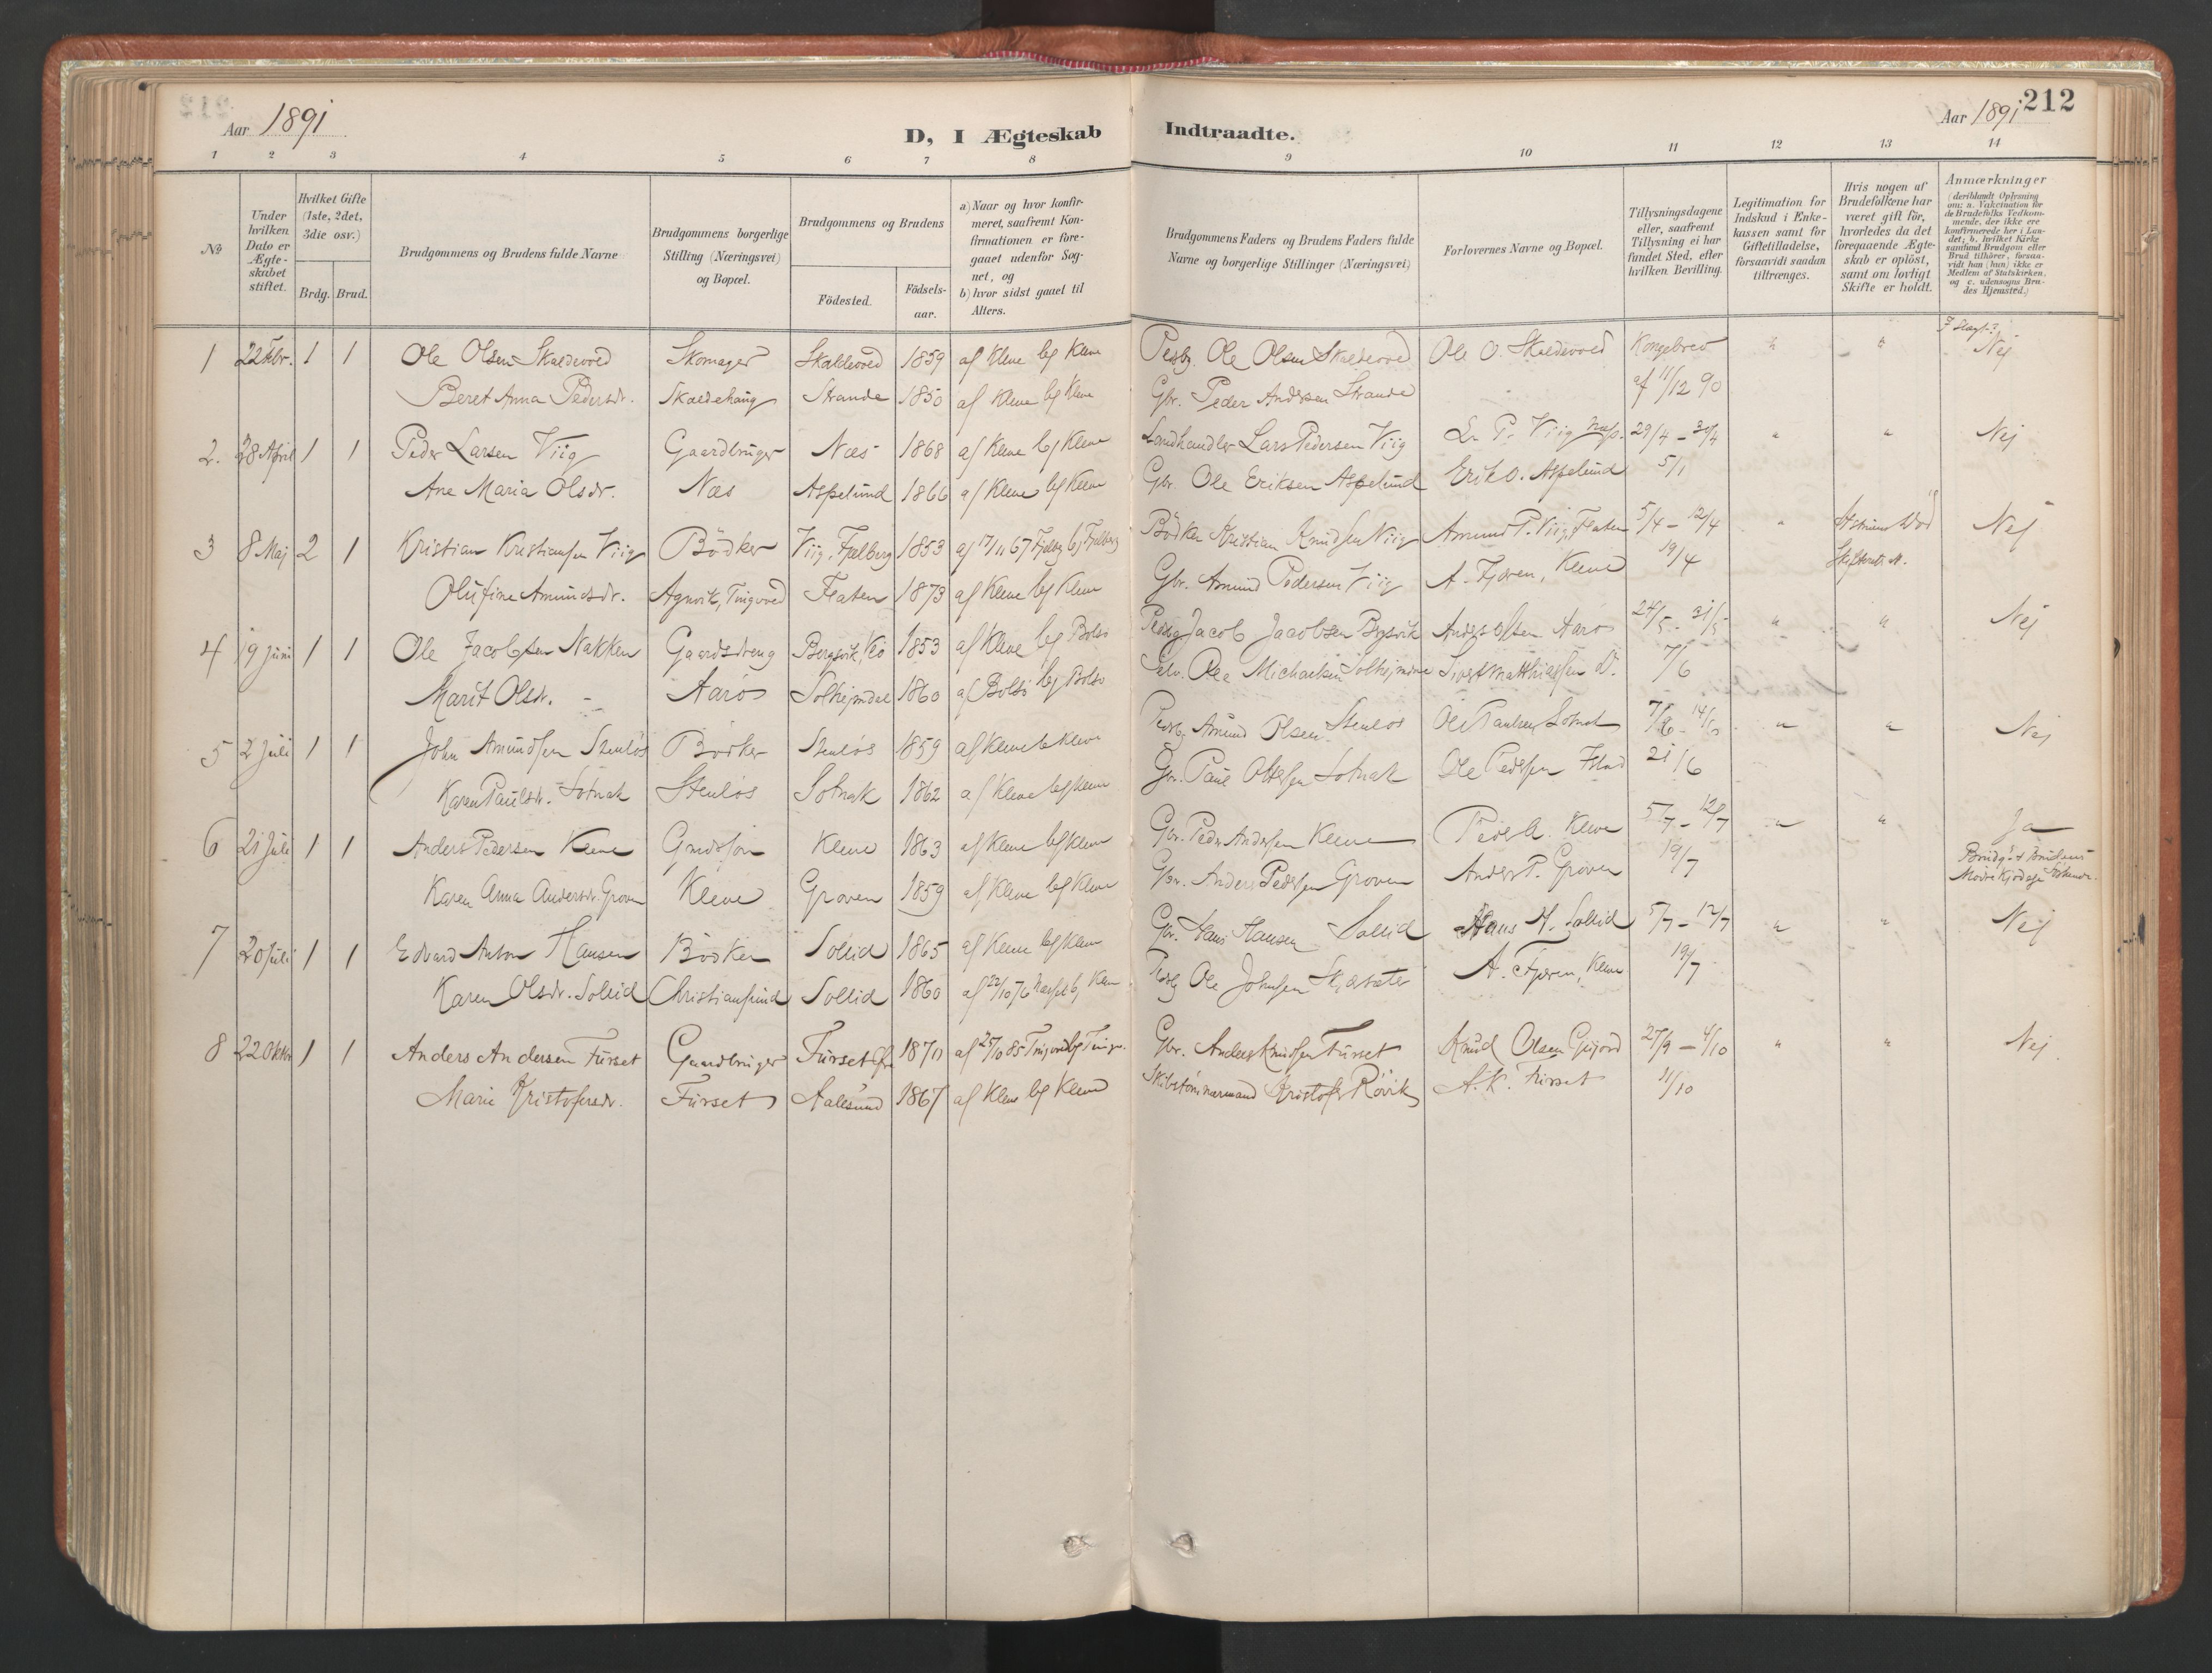 212
Aar 1891
D, I Ægteskab Indtraadte.
Aar 1891
1 2 3 4 5 6 7 8 9 10 11 12 13 14
No
Under hvilken Dato er Ægteskabet stiftet.
Hvilket Gifte (1ste, 2det, 3die osv.)
Brdg. Brud.
Brudgommens og Brudens fulde Navne
Brudgommens borgerlige Stilling (Næringsvei) og Bopæl.
Brudgommens og Brudens
Födested.
Födselsaar.
a) Naar og hvor konfirmeret, saafremt Konfirmationen er foregaaet udenför Sognet, og
b) hvor sidst gaaet til Alters.
Brudgommens Faders og Brudens Faders fulde Navne og borgerlige Stillinger (Næringsvei)
Forlovernes Navne og Bopæl.
Tillysningsdagene eller, saafremt Tillysning ei har fundet Sted, efter hvilken Bevilling.
Legitimation for Indskud i Enkekassen samt for Giftetilladelse, forsaavidt saadan tiltrænges.
Hvis nogen af Brudefolkene har været gift för, hvorledes da det foregaaende Ægteskab er oplöst, samt om lovligt Skifte er holdt.
Anmærkninger
(deriblandt Oplysning om: a. Vakcination for de Brudefolks Vedkommende, der ikke ere konfirmerede her i Landet; b. hvilket Kirkesamfund Brudgom eller Brud tilhörer, forsaavidt han (hun) ikke er Medlem af Statskirken, og c. udensogns Brudes Hjemsted.)
1 22 Febr. 1 1 Ole Olsen Skaldevoed Skomager Skaldevoed 1859 a/ Kleve b/ Kleve Ole Olsen Skaldevoed Ole O. Skaldevoed Kongebrev " " Nej
Beret Anna Pedersdr. Skaldehaug Strande 1850 a/ Kleve b/ Kleve Gbr. Peder Andersen Strande af 11/12 90
2. 28 April 1 1 Peder Larsen Viig Gaardbruger Næs 1868 a/ Kleve b/ Kleve Landhandler Lars Pedersen Viig L. P. Viig 29/4 - 30/4 " " Nej
Ane Maria Olsdr. Næs Aspelund 1866 a/ Kleve b/ Kleve Gbr. Ole Eriksen Aspelund Erik O. Aspelund 5/1
3 8 Maj 2 1 Kristian Kristiansen Viig Bödker Viig, Fjelberg 1853 a/ 17/11 67 Fjelbg b/ Fjelberg Bödker Kristian Knudsen Viig Amund P. Viig, Flaten 5/4 - 12/4 " Nej
Olufine Amundsdr. Agnvik, Tingvoed Flaten 1873 a/ Kleve b/ Kleve Gbr. Amund Pedersen Viig A. Fjæren, Kleve 19/4
4 19 Juni 1 1 Ole Jacobsen Nakken Gaardsdreng Bergsvik, 1853 a/ Kleve b/ Bolsö Jacob Jacobsen Bergsvik Anders Olsen Aarö 24/5 - 31/5 " " Nej
Marit Olsdr. - Aarö Solhejmdal 1860 a/ Bolsö b/ Bolsö Ole Michaelsen Sivert Matthiassen 7/6
5 2 Juli 1 1 John Amundsen Stenlös Bödker Stenlös 1859 a/ Kleve b/ Kleve Amund Olsen Stenlös Ole Paulsen Sotnak 7/6 - 14/6 " " Nej
Karen Paulsdr. Sotnak Stenlös Sotnak 1862 a/ Kleve b/ Kleve Gbr. Paul Ottesen Sotnak Ole Pedersen Istad 21/6
6 21 Juli 1 1 Anders Pedersen Kleve Grdssön Kleve 1863 a/ Kleve b/ Kleve Gbr. Peder Andersen Kleve Peder A. Kleve 5/7 - 12/7 " " Ja
Karen Anna Andersdr. Groven Kleve Groven 1859 a/ Kleve b/ Kleve Gbr. Anders Pedersen Groven Anders P. Groven 19/7
7 20 Juli 1 1 Edvard Anton Hansen Bödker Sollid 1865 a/ Kleve b/ Kleve Gbr. Hans Hansen Sollid Hans H. Sollid 5/7 - 12/7 " " Nej
Karen Olsdr. Sollid Christiansund Sollid 1860 a/ 22/10 76 b/ Kleve Ole Johnsen A. Fjæren, Kleve 19/7
8 22 Oktbr 1 1 Anders Andersen Furset Gaardbruger Furset 1870 a/ 25/10 85 Tingvoed b/ Tingv. Gbr. Anders Knudsen Furset Knud Olsen 27/9 - 4/10 " " Nej
Marie Kristofersdr. Furset Aalesund 1867 a/ Kleve b/ Kleve Skibstömmermand Kristofer Rövik A. K. Furset 11/10